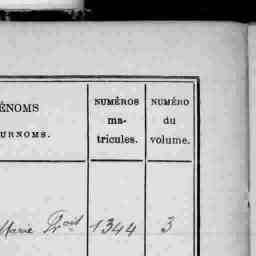 ÉNOMS
URNOMS.
NUMÉROS
ma-
tricules.
NUMÉRO
du
volume.
Marie 1344 3